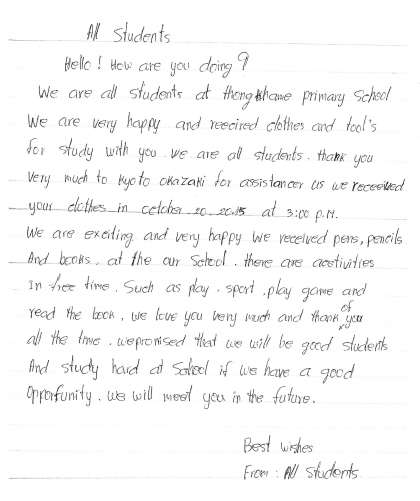 All Students
Hello! How are you doing?
We are all students at thongkhame primary School
We are very happy and reecired clothes and tool's
for study with you we are all students. thank you
very much to kyoto okazaki for assistancer us we receeved
your clothes in october 20 2015 at 3:00 p.m.
We are exceting and very happy we received pens, pencils
And books, at the our School. there are acetivities
In free time. Such as play. sport, play game and
read the book, we love you very much and thank of you
all the time. wepromised that we will be good students
And study hard at School if we have a good
Opporfunity. we will meet you in the future.
Best wishes
From: All Students